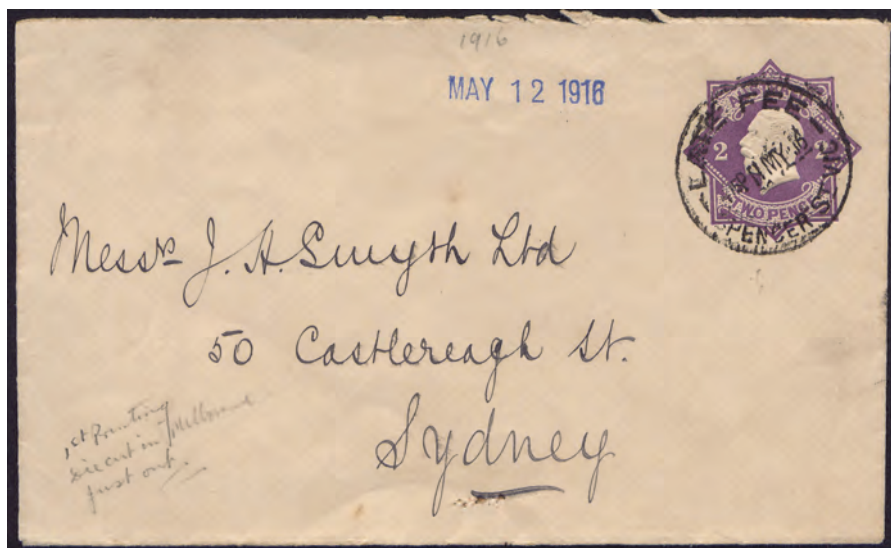 1916
MAY 12 1916
LATE FEE
VIC
8P 11 MY 16
SPENCER ST
2 2
TWO PENCE
Messrs J. H. Smyth Ltd
50 Castlereagh St.
Sydney
1st printing
die cut in Melbourne
just out